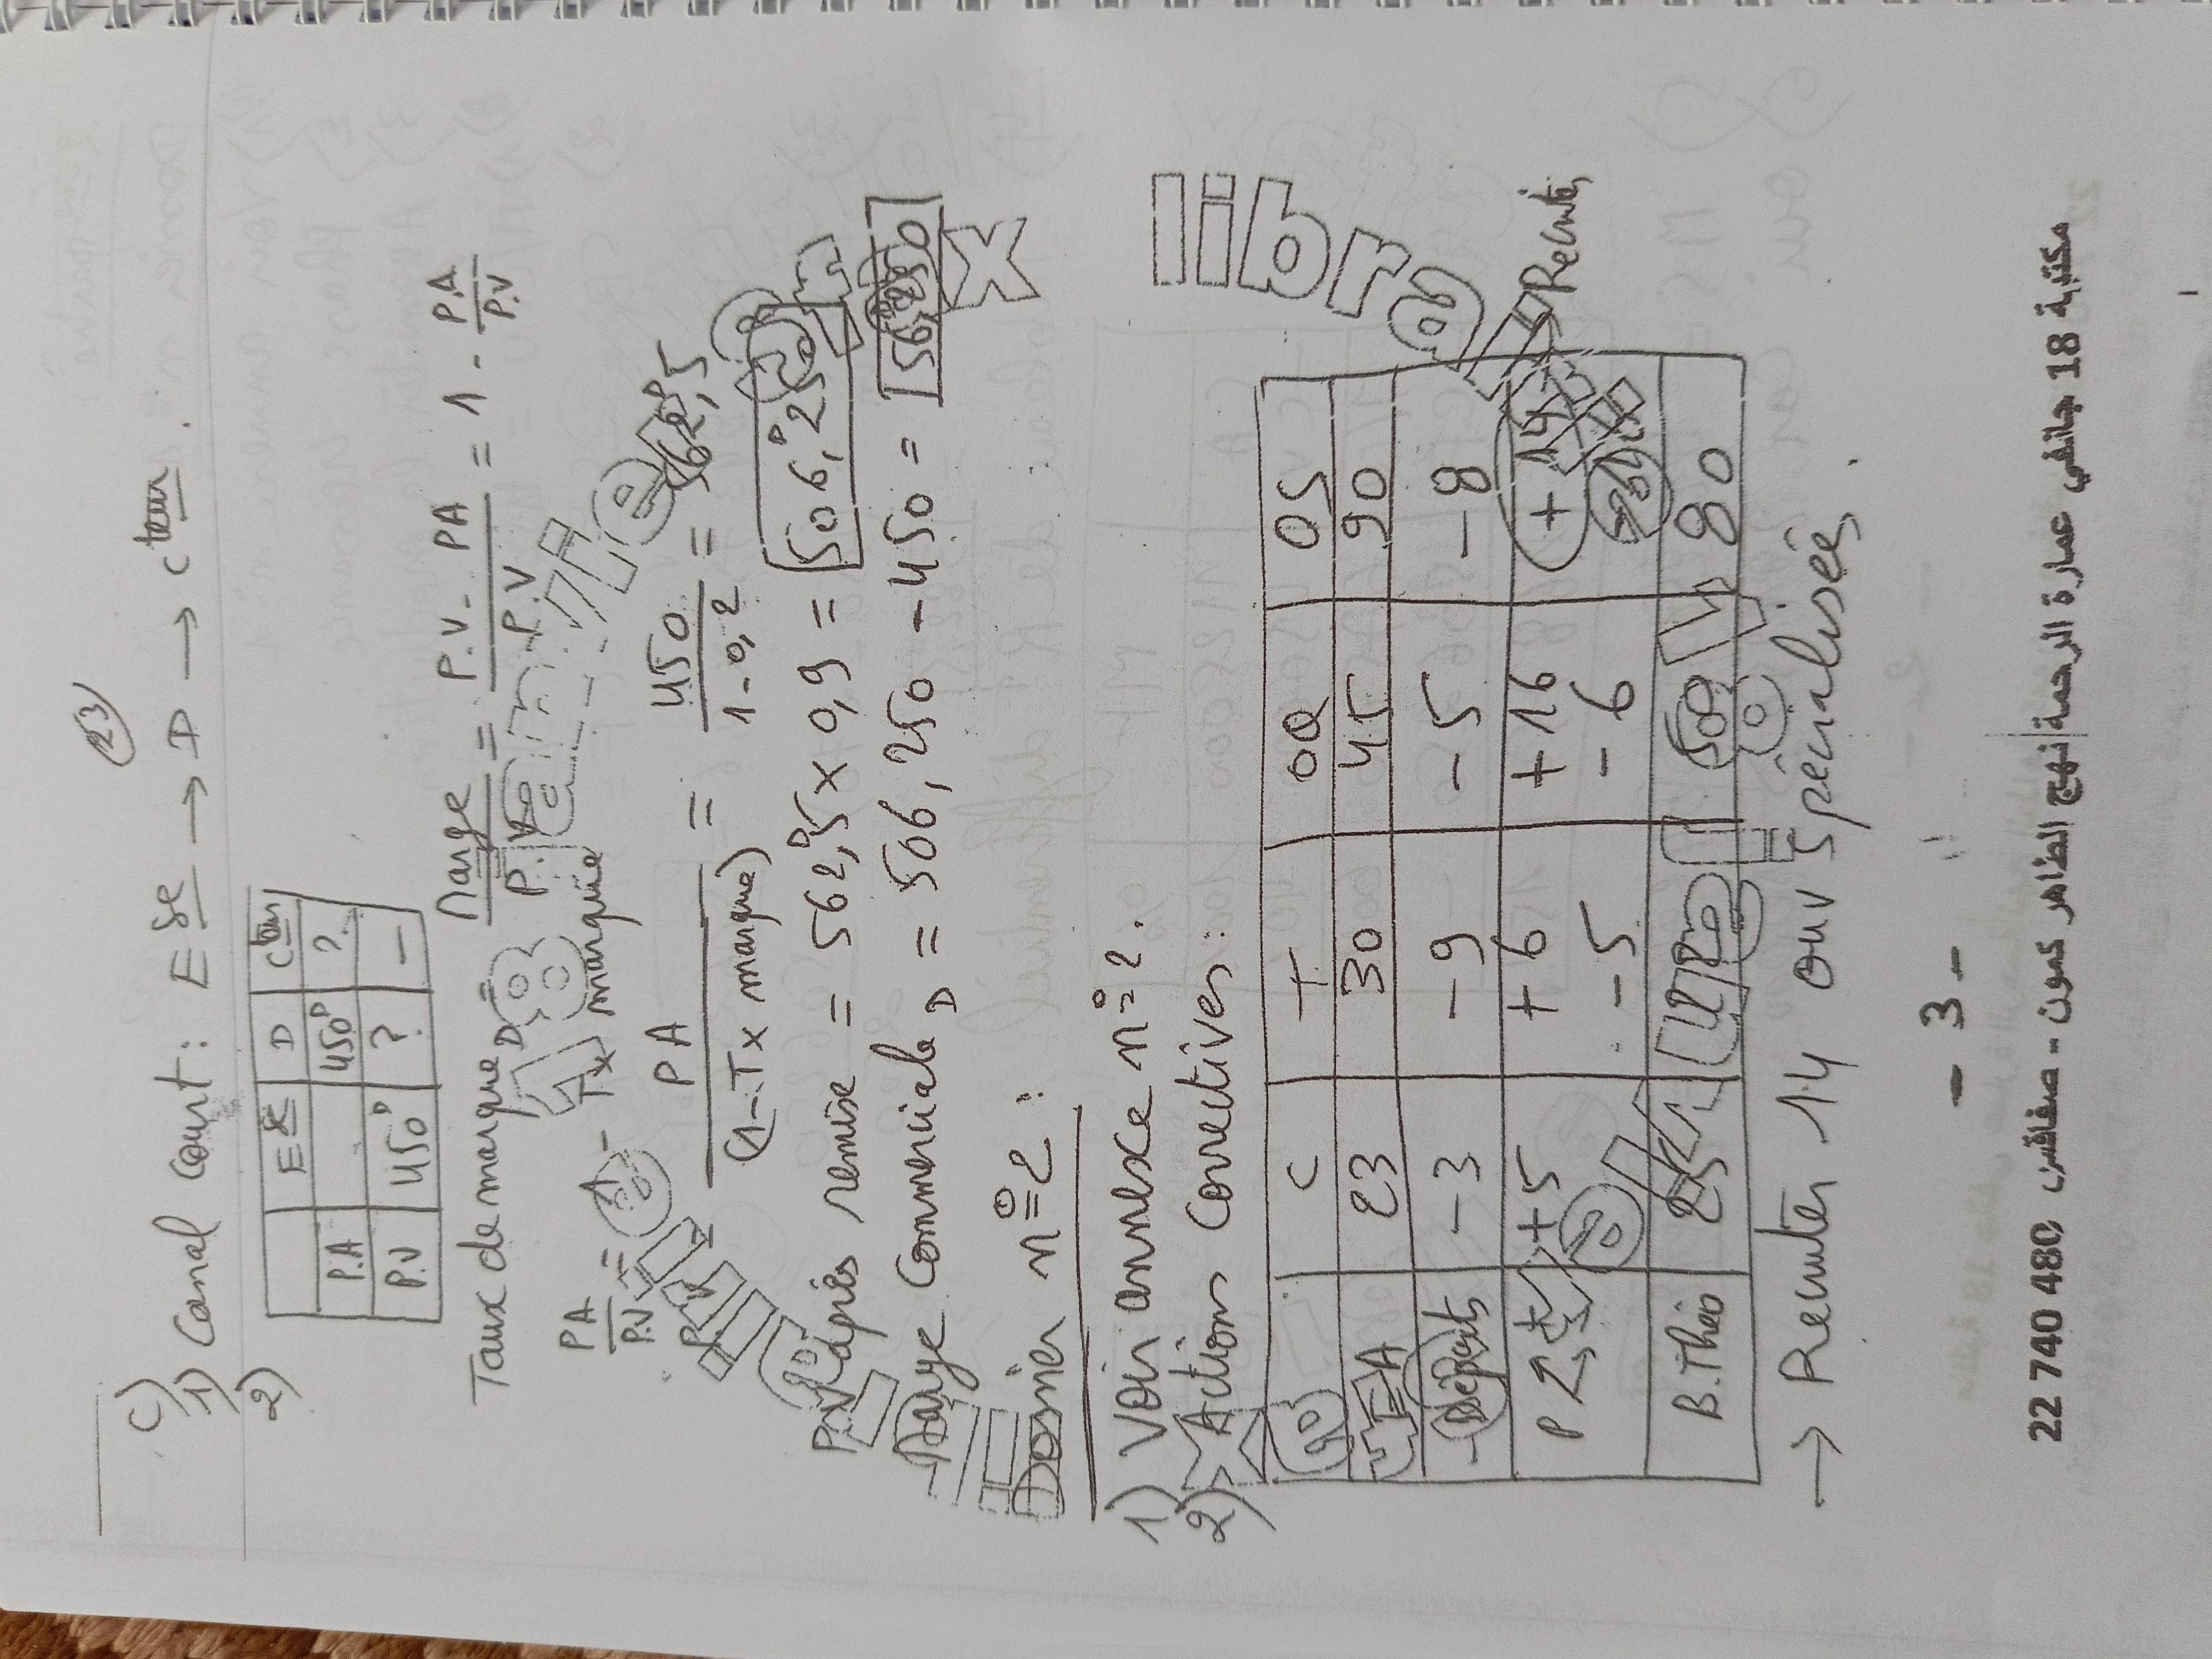 23
C)
1) Canal court : Ese → D → cteur.
2)
Ese D cteur
P.A 450D ?
P.V 450D ? —
Taux de marqueD = Marge / P.V = P.V - PA / P.V = 1 - P.A / P.V
PA / P.V = 1 - Tx marque
P.V = PA / (1 - Tx marque) = 450 / 1 - 0,2 = 562D,5
P.V après remise = 562D,5 x 0,9 = 506D,25
Marge CommercialeD = 506,250 - 450 = 56D,250
Dossier n°2 :
1) Voir annexe n°2.
2) Actions Correctives :
C T OQ OS
A 23 30 45 90
- Départs -3 -9 -5 -8
P +5 +6 +16 +14 → Recruter
-5 -6
B. Théo 25 22 50 80
→ Recruter 14 ouv spécialisés.
- 3 -
library
22 740 480 مكتبة 18 جانفي عمارة الرحمة نهج الطاهر كمون - صفاقس